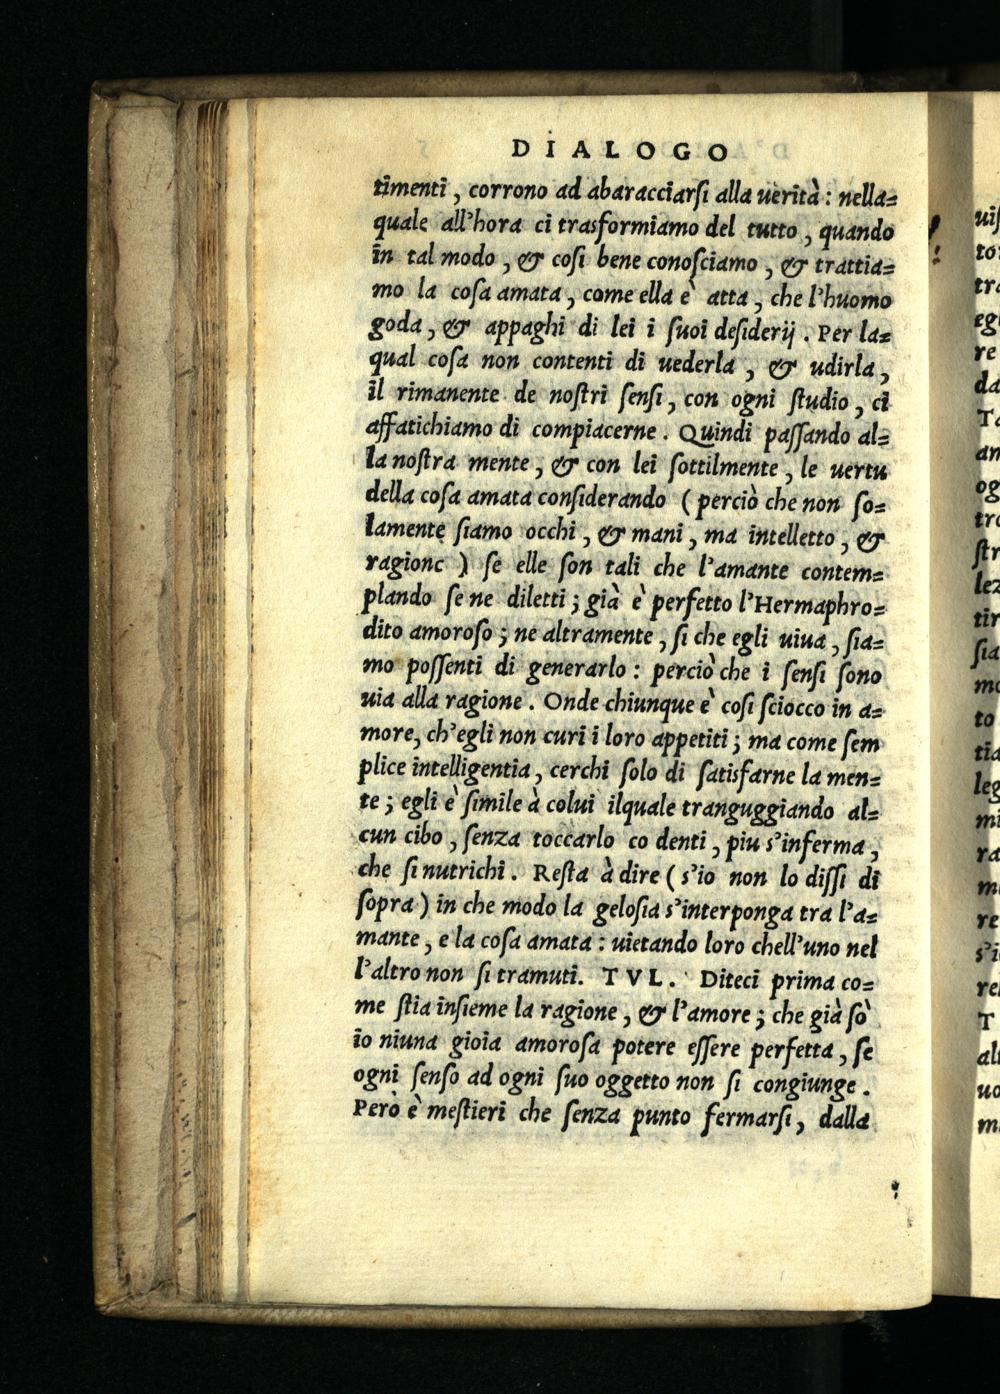 DIALOGO
timenti, corrono ad abaracciarſi alla uerità: nella=
quale all'hora ci trasformiamo del tutto, quando
in tal modo, & coſi bene conoſciamo, & trattia=
mo la coſa amata, come ella è atta, che l'huomo
goda, & appaghi di lei i ſuoi deſiderij. Per la=
qual coſa non contenti di uederla, & udirla,
il rimanente de noſtri ſenſi, con ogni ſtudio, ci
affatichiamo di compiacerne. Quindi paſſando al=
la noſtra mente, & con lei ſottilmente, le uertu
della coſa amata conſiderando (perciò che non ſo=
lamente ſiamo occhi, & mani, ma intelletto, &
ragione) ſe elle ſon tali che l'amante contem=
plando ſe ne diletti; già è perfetto l'Hermaphro=
dito amoroſo; ne altramente, ſi che egli uiua, ſia=
mo poſſenti di generarlo: perciò che i ſenſi ſono
uia alla ragione. Onde chiunque è coſi ſciocco in a=
more, ch'egli non curi i loro appetiti; ma come ſem
plice intelligentia, cerchi ſolo di ſatisfarne la men=
te; egli è ſimile à colui ilquale tranguggiando al=
cun cibo, ſenza toccarlo co denti, piu s'inferma,
che ſi nutrichi. Reſta à dire (s'io non lo diſſi di
ſopra) in che modo la geloſia s'interponga tra l'a=
mante, e la coſa amata: uietando loro chell'uno nel
l'altro non ſi tramuti. TVL. Diteci prima co=
me ſtia inſieme la ragione, & l'amore; che già sò
io niuna gioia amoroſa potere eſſere perfetta, ſe
ogni ſenſo ad ogni ſuo oggetto non ſi congiunge.
Però è meſtieri che ſenza punto fermarſi, dalla